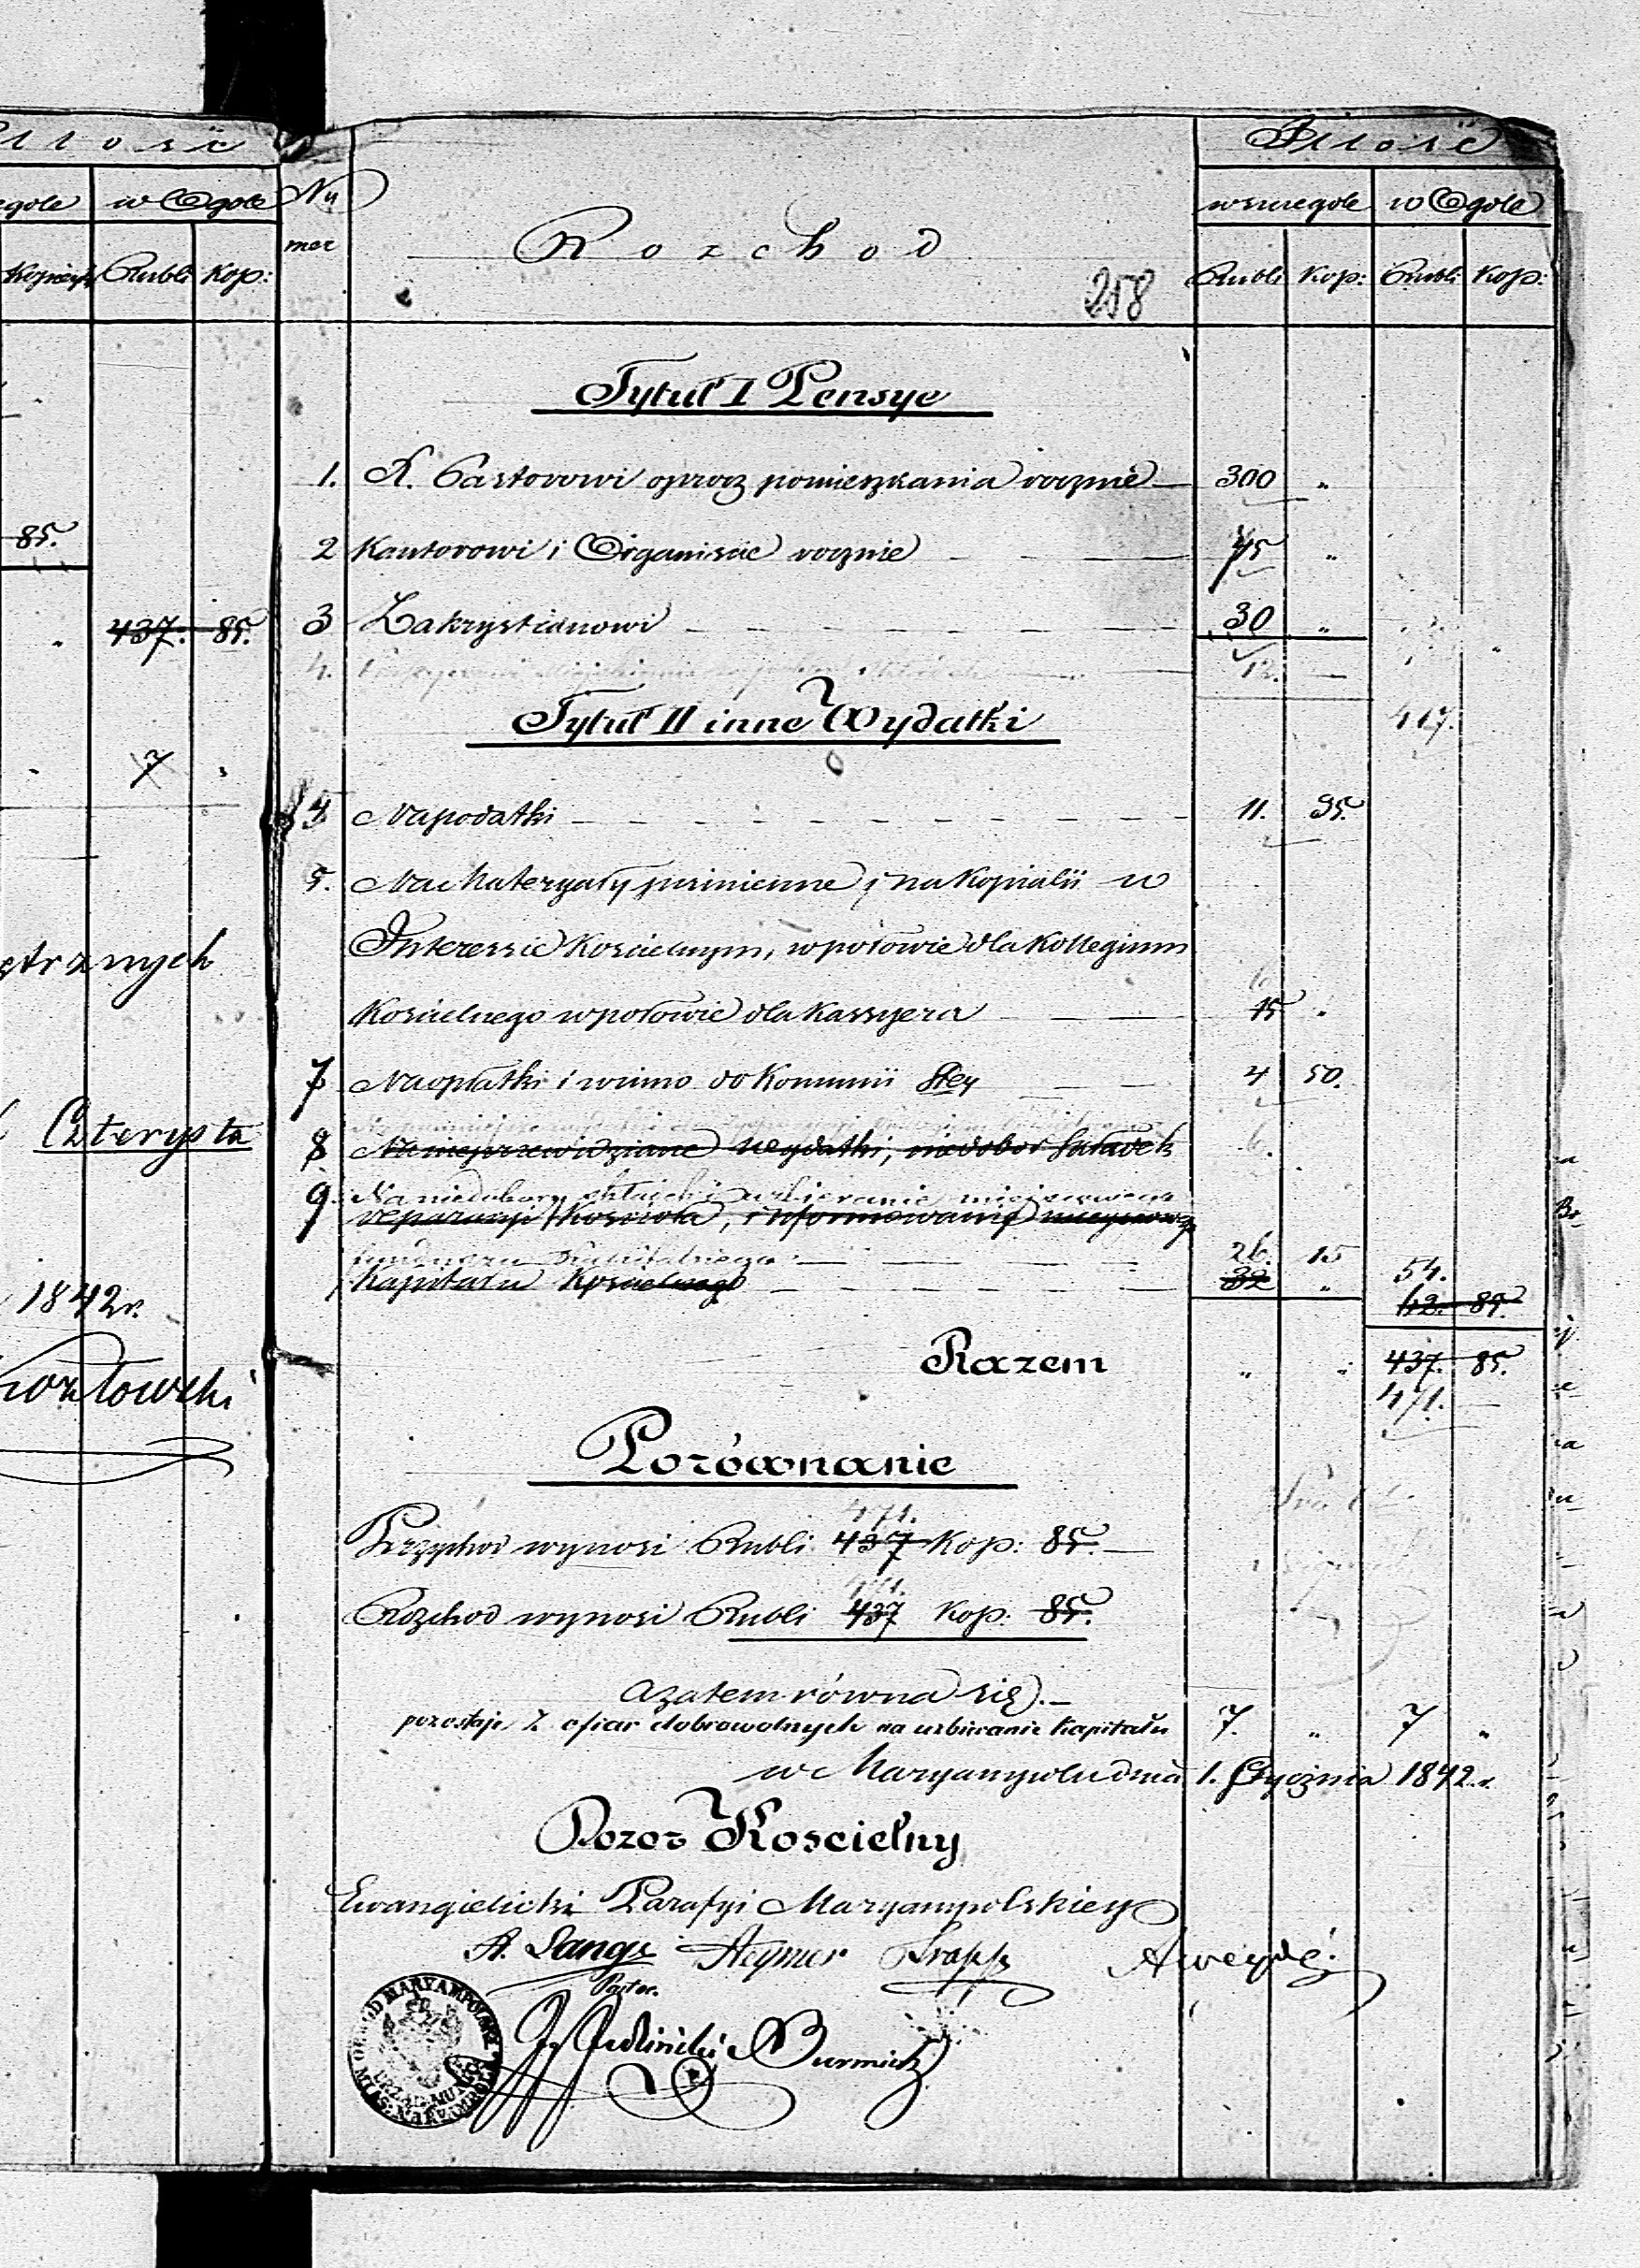 Ilość
egole w Ogole
Kopiejki Rubli Kop:
85.
437. 85.
7
Czterysta
1842 r.
Nu
mer
Rozchod
258
Ilość
wszczegole w Ogole
Rubli Kop: Rubli Kop:
Tytuł I Pensye
1. X. Pastorowi oprocz pomieszkania rocznie 300 "
2 Kantorowi i Organiscie rocznie 75 "
3 Zakrystianowi 30 "
4. 12. —
417.
Tytuł II inne Wydatki
4 Na podatki 11. 35.
5. Na Materyały pismienne i na Kopialii w
Interessie Koscielnym, w połowie dla Kollegium
Koscielnego w połowie dla Kassyera 15
7 Na opłatki i wino do Komunii Stey 4 50.
8 Na nieprzewidziane wydatki, niedobor składek 6.
9. Na niedobory składek i uzbieranie miejscowego
reparacyi Kościoła, i uformowanie mieyscowego
26. 15 54.
Kapitału Koscielnego 32 " 62. 85.
Razem " " 437. 85.
471.
Porównanie
471.
Przychod wynosi Rubli 437 Kop: 85.
471.
Rozchod wynosi Rubli 437 Kop: 85.
a zatem równa się.
pozostaje z ofiar dobrowolnych na uzbieranie kapitału 7. " 7 "
w Maryampolu dnia 1. Stycznia 1842. r.
Dozor Koscielny
Ewangielicki Parafyi Maryampolskiey
A. Lange Heymer Trapp
Pastor.
Burmistrz
OBWÓD MARYAMPOLSKI
URZĄD MUNIC.
MIAS. MARYAMPOLA